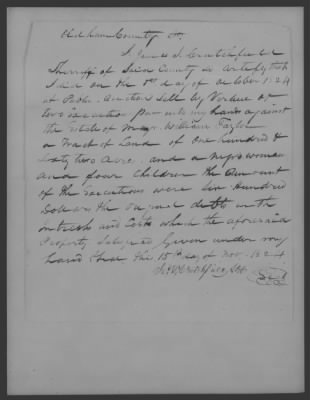 Oldham County Sct.
I James S. Crutchfield
Sherriff of Said County do Certify that
I did on the 1st day of October 1824
at Public Auction Sell by Vertue of
two execution put into my hands against
the estate of Majr William Taylor
a Tract of Land of One hundred &
Sixty two Acres and a Negro woman
and four Children the Amount
of the executions were Six Hundred
Dollars the original debt with
Intrest and Costs which the aforesaid
Property Satisfied Given under my
hand & Seal this 15th day of Nov. 1824